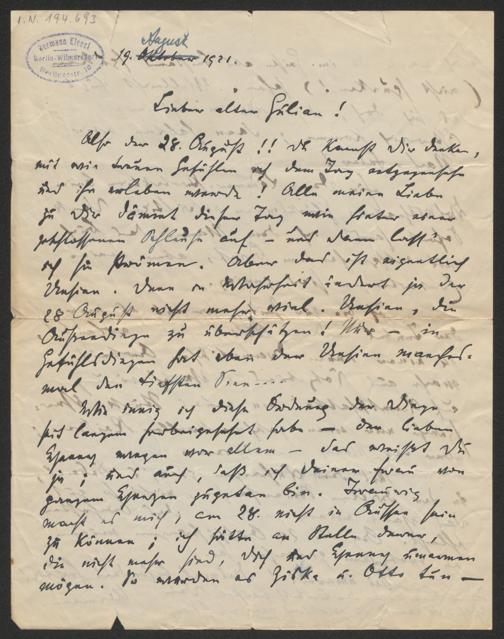 I.N. 194.693
Hermann Kienzl
Berlin-Wilmersdorf
August
19. Oktober 1921.
Lieber alter Julian!
Also der 28. August!! Du kannst Dir denken,
mit wie treuen Gefühlen ich dem Tag entgegensehe
und ihn erleben werde! Alle meine Liebe
zu Dir dämmt dieser Tag wie hinter einer
geschlossenen Schleuse auf – und dann lass'
ich sie strömen. Aber das ist eigentlich
Unsinn. Denn in Wahrheit ändert ja der
28. August nicht mehr viel. Unsinn, die
Aussendinge zu überschätzen! Nur – in
Gefühlsdingen hat eben der Unsinn manches-
mal den tiefsten Sinn....
Wie innig ich diese Ordnung der Dinge
seit langem herbeigesehnt habe – der lieben
wegen vor allem – das weisst Du
ja; und auch, daß ich Deiner Frau von
ganzem Herzen zugetan bin. Traurig
macht es mich, am 28. nicht in Aussee sein
zu können; ich hätte an Stelle derer,
die nicht mehr sind, Dich und umarmen
mögen. So werden es Ziska u. Otto tun –